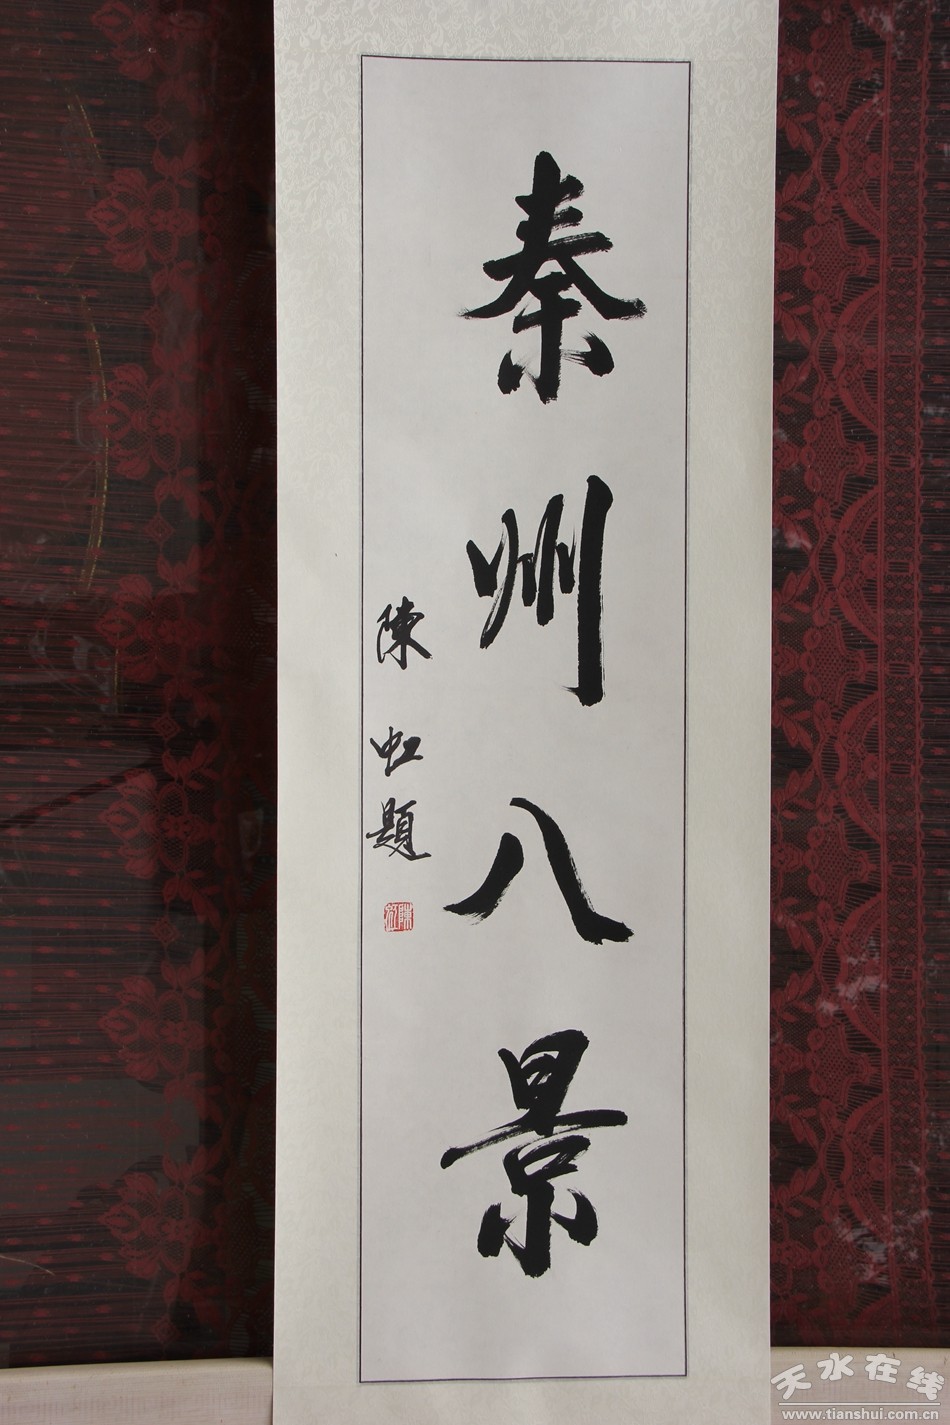 秦州八景
陳虹題
陳虹
天水在线
www.tianshui.com.cn